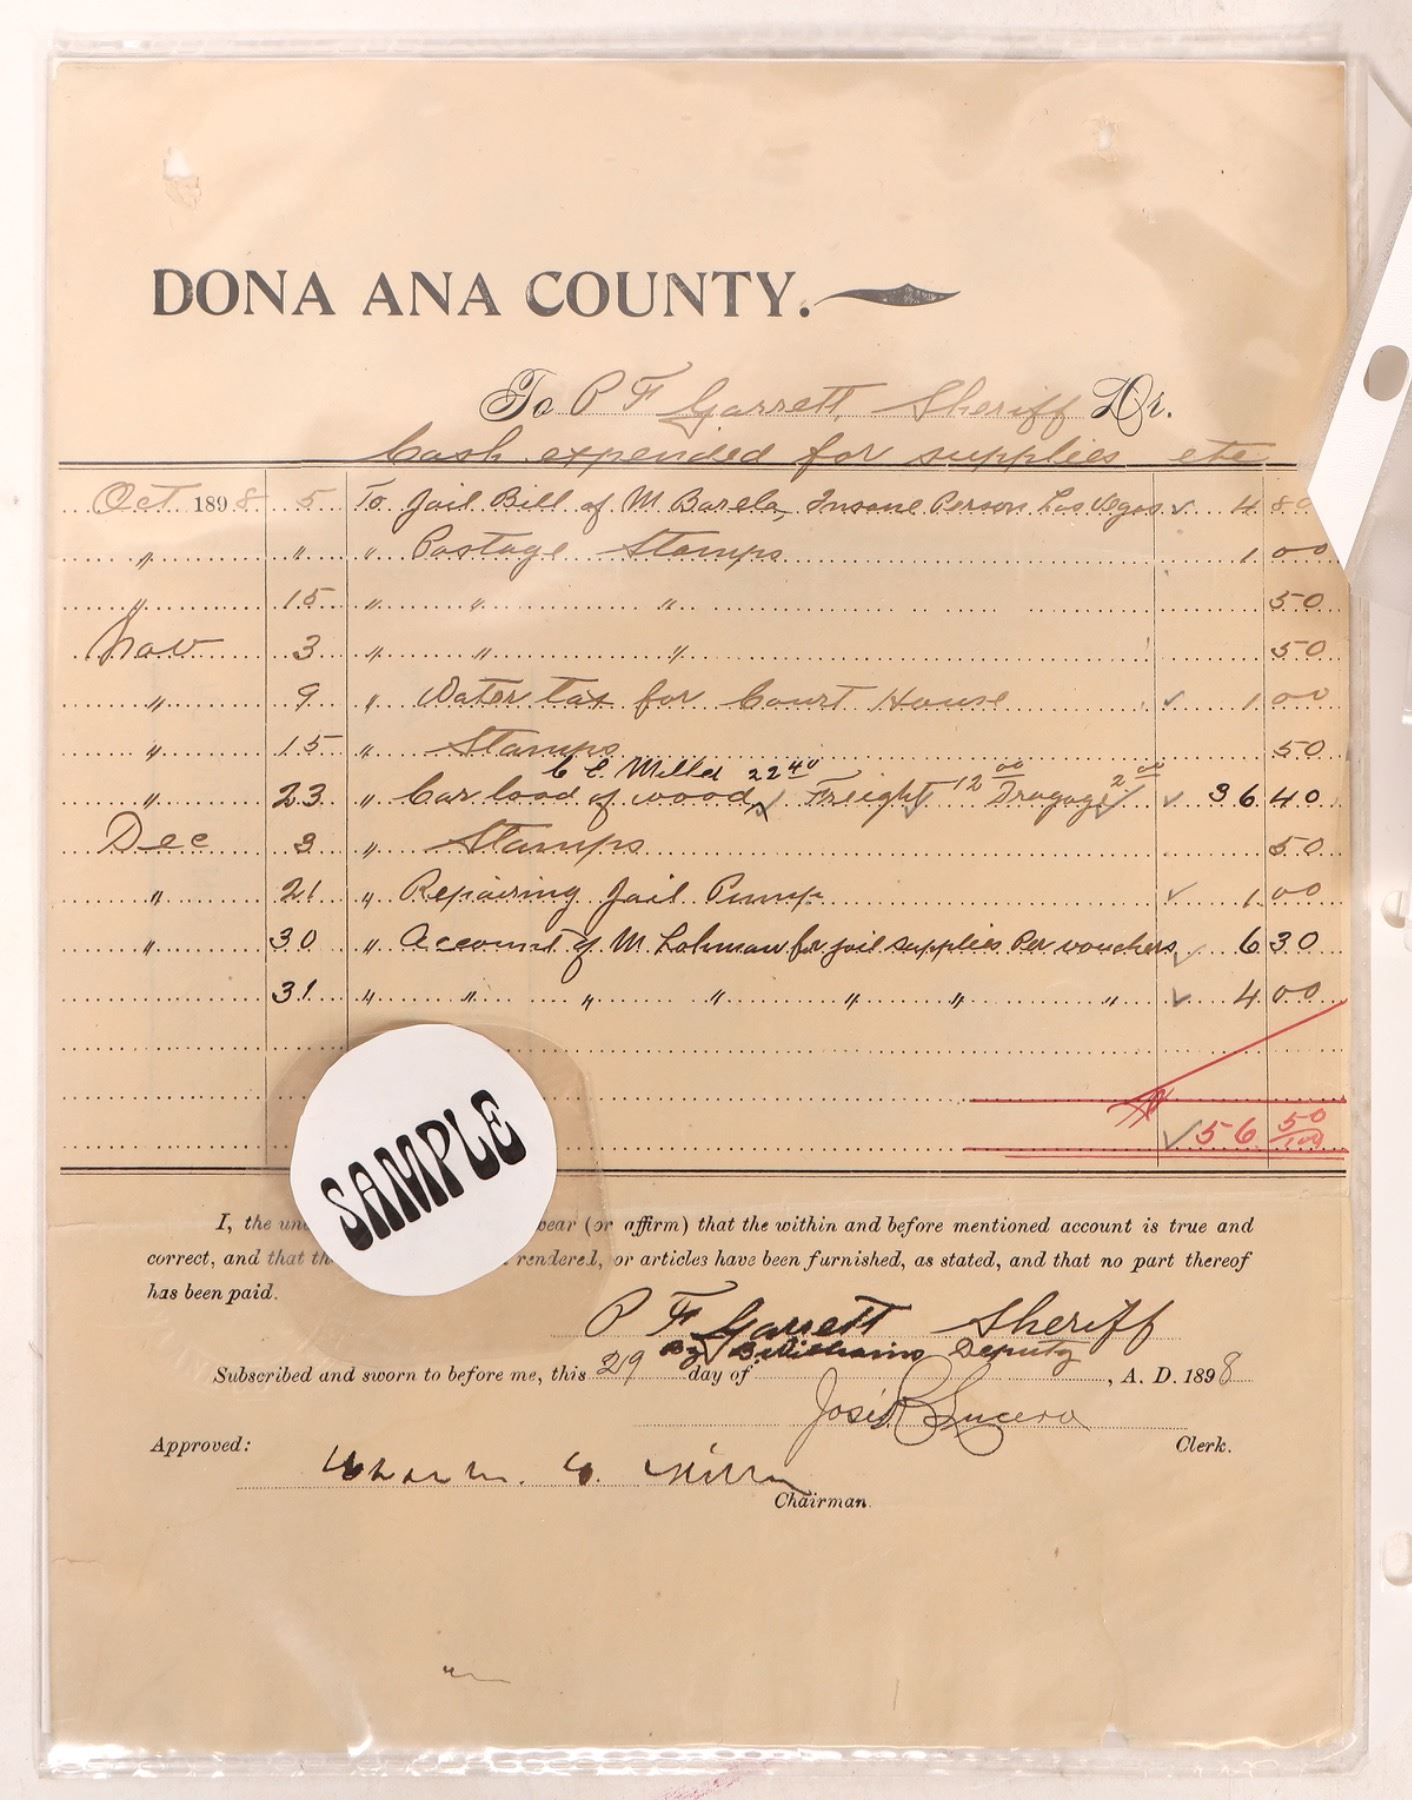 DONA ANA COUNTY.
To P F Garrett, Sheriff Dr.
Cash expended for supplies etc
Oct 1898 5 To Jail Bill of M Barela, Insane Person Las Vegas ✓ 4 80
" " " Postage Stamps 1 00
" 15 " " " 50
Nov 3 " " " 50
" 9 " Water tax for Court House ✓ 1 00
" 15 " Stamps 50
C E Miller 22 40
" 23 " Car load of wood ✓ Freight ✓ 12 00 Drayage 2 00 ✓ ✓ 36 40
Dec 3 " Stamps 50
" 21 " Repairing Jail Pump ✓ 1 00
" 30 " Account of M Lohman for jail supplies Per vouchers ✓ 6 30
31 " " " " " " " ✓ 4 00
✓ 56 50/100
SAMPLE
I, the wear (or affirm) that the within and before mentioned account is true and
correct, and that rendered, or articles have been furnished, as stated, and that no part thereof
has been paid.
P F Garrett Sheriff
By B. Williams Deputy
Subscribed and sworn to before me, this 29 day of , A. D. 1898
José R Lucero
Clerk.
Approved:
Chairman.